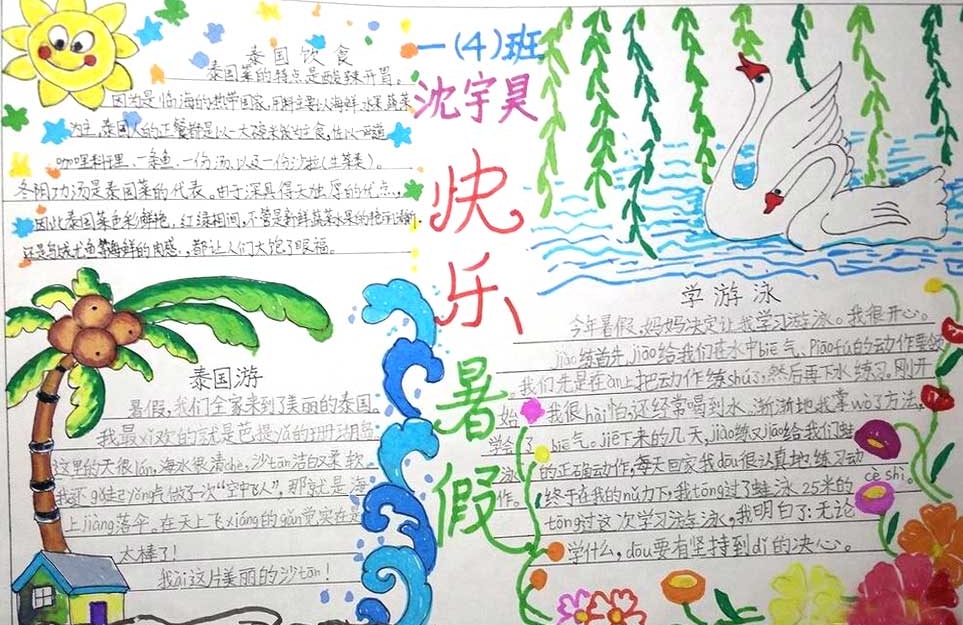 泰国饮食
泰国菜的特点是酸辣开胃。
因为是临海的热带国家,用料主要以海鲜、水果、蔬菜
为主,泰国人的正餐都是以一大碗米饭为主食,佐以一两道
咖喱料理、一条鱼、一份汤,以及一份沙拉(生菜类)。
冬阴功汤是泰国菜的代表。由于深具得天独厚的优点,
因此泰国菜色彩鲜艳,红绿相间,不管是新鲜蔬菜水果的
还是鱼鲜的肉感,都让人们大饱了眼福。
一(4)班
沈宇昊
快乐暑假
泰国游
暑假,我们全家来到了美丽的泰国。
我最xǐ欢的就是芭提yǎ的珊瑚岛
这里的天很lán,海水很清chè,沙tān洁白又柔软。
我还gǔ起yǒng气做了次“空中飞人”,那就是海
上jiàng落伞。在天上飞xiáng的gǎn觉实在是
太棒了!
我ài这片美丽的沙tān!
学游泳
今年暑假,妈妈决定让我学习游泳。我很开心。
jiāo练首先jiāo给我们在水中biē气、piāo fú的动作要领
我们先是在àn上把动作练shú了,然后再下水练习。刚开
始,我很hài怕,还经常喝到水、渐渐地我掌wò了方法,
学会了biē气。jiē下来的几天,jiāo练又jiāo给我们蛙
泳的正确动作,每天回家我dōu很认真地练习动
作。cè shì。
终于在我的nǔ力下,我tōng过了蛙泳25米的
tōng过这次学习游泳,我明白了:无论
学什么,dōu要有坚持到dǐ的决心。